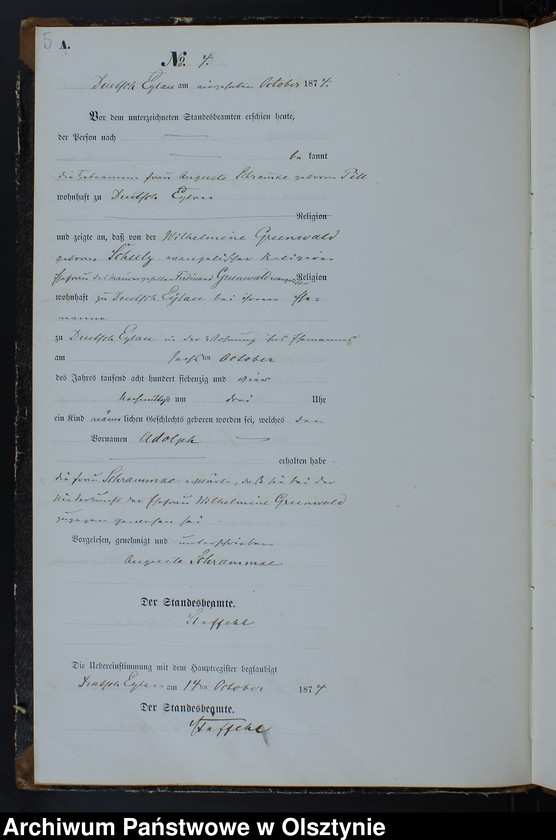 5
A.
No. 4.
Deutsch Eylau am vierzehnten October 1874.
Vor dem unterzeichneten Standesbeamten erschien heute,
der Person nach
be kannt
die Hebamme Frau Auguste Schramke geborene Pill
wohnhaft zu Deutsch Eylau
Religion
und zeigte an, daß von der Wilhelmine Grunwald
geborne Schulz evangelischer Religion
Ehefrau des Maurergesellen Ferdinand Grunwald Religion
wohnhaft zu Deutsch Eylau bei ihrem Ehe-
manne
zu Deutsch Eylau in der Wohnung ihres Ehemannes
am ten October
des Jahres tausend acht hundert siebenzig und vier
Nachmittags um drei Uhr
ein Kind männlichen Geschlechts geboren worden sei, welches den
Vornamen Adolph
erhalten habe
die Frau Schrammke erklärte, daß sie bei der
Niederkunft der Ehefrau Wilhelmine Grunwald
zugegen gewesen sei
Vorgelesen, genehmigt und unterschrieben
Auguste Schrammke
Der Standesbeamte.
Staffehl
Die Uebereinstimmung mit dem Hauptregister beglaubigt
Deutsch Eylau am 14ten October 1874
Der Standesbeamte.
Staffehl
Archiwum Państwowe w Olsztynie